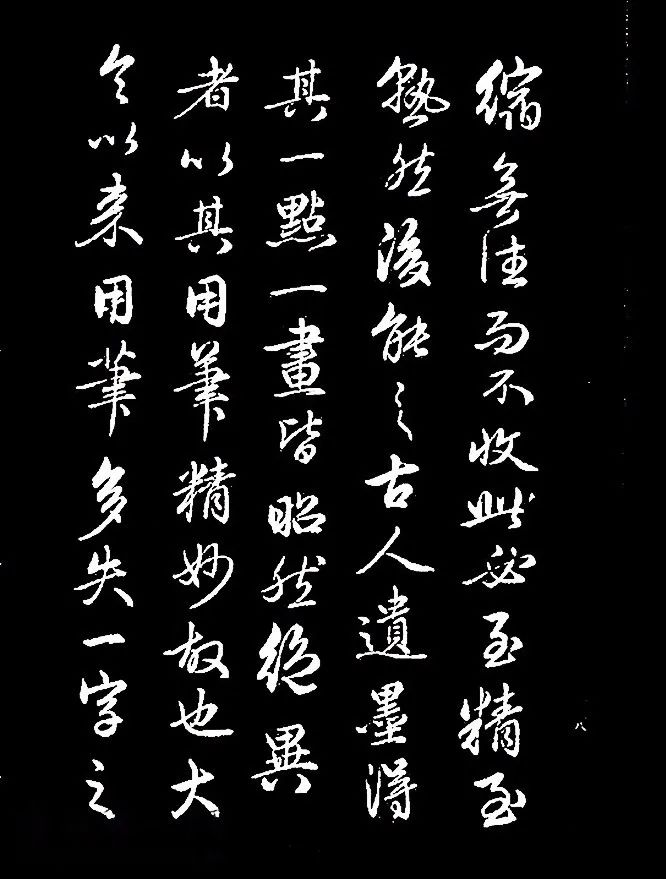 縮無往而不收此必至精至
熟然後能之古人遺墨得
其一點一畫皆昭然絕異
者以其用筆精妙故也大
令以來用筆多失一字之
八